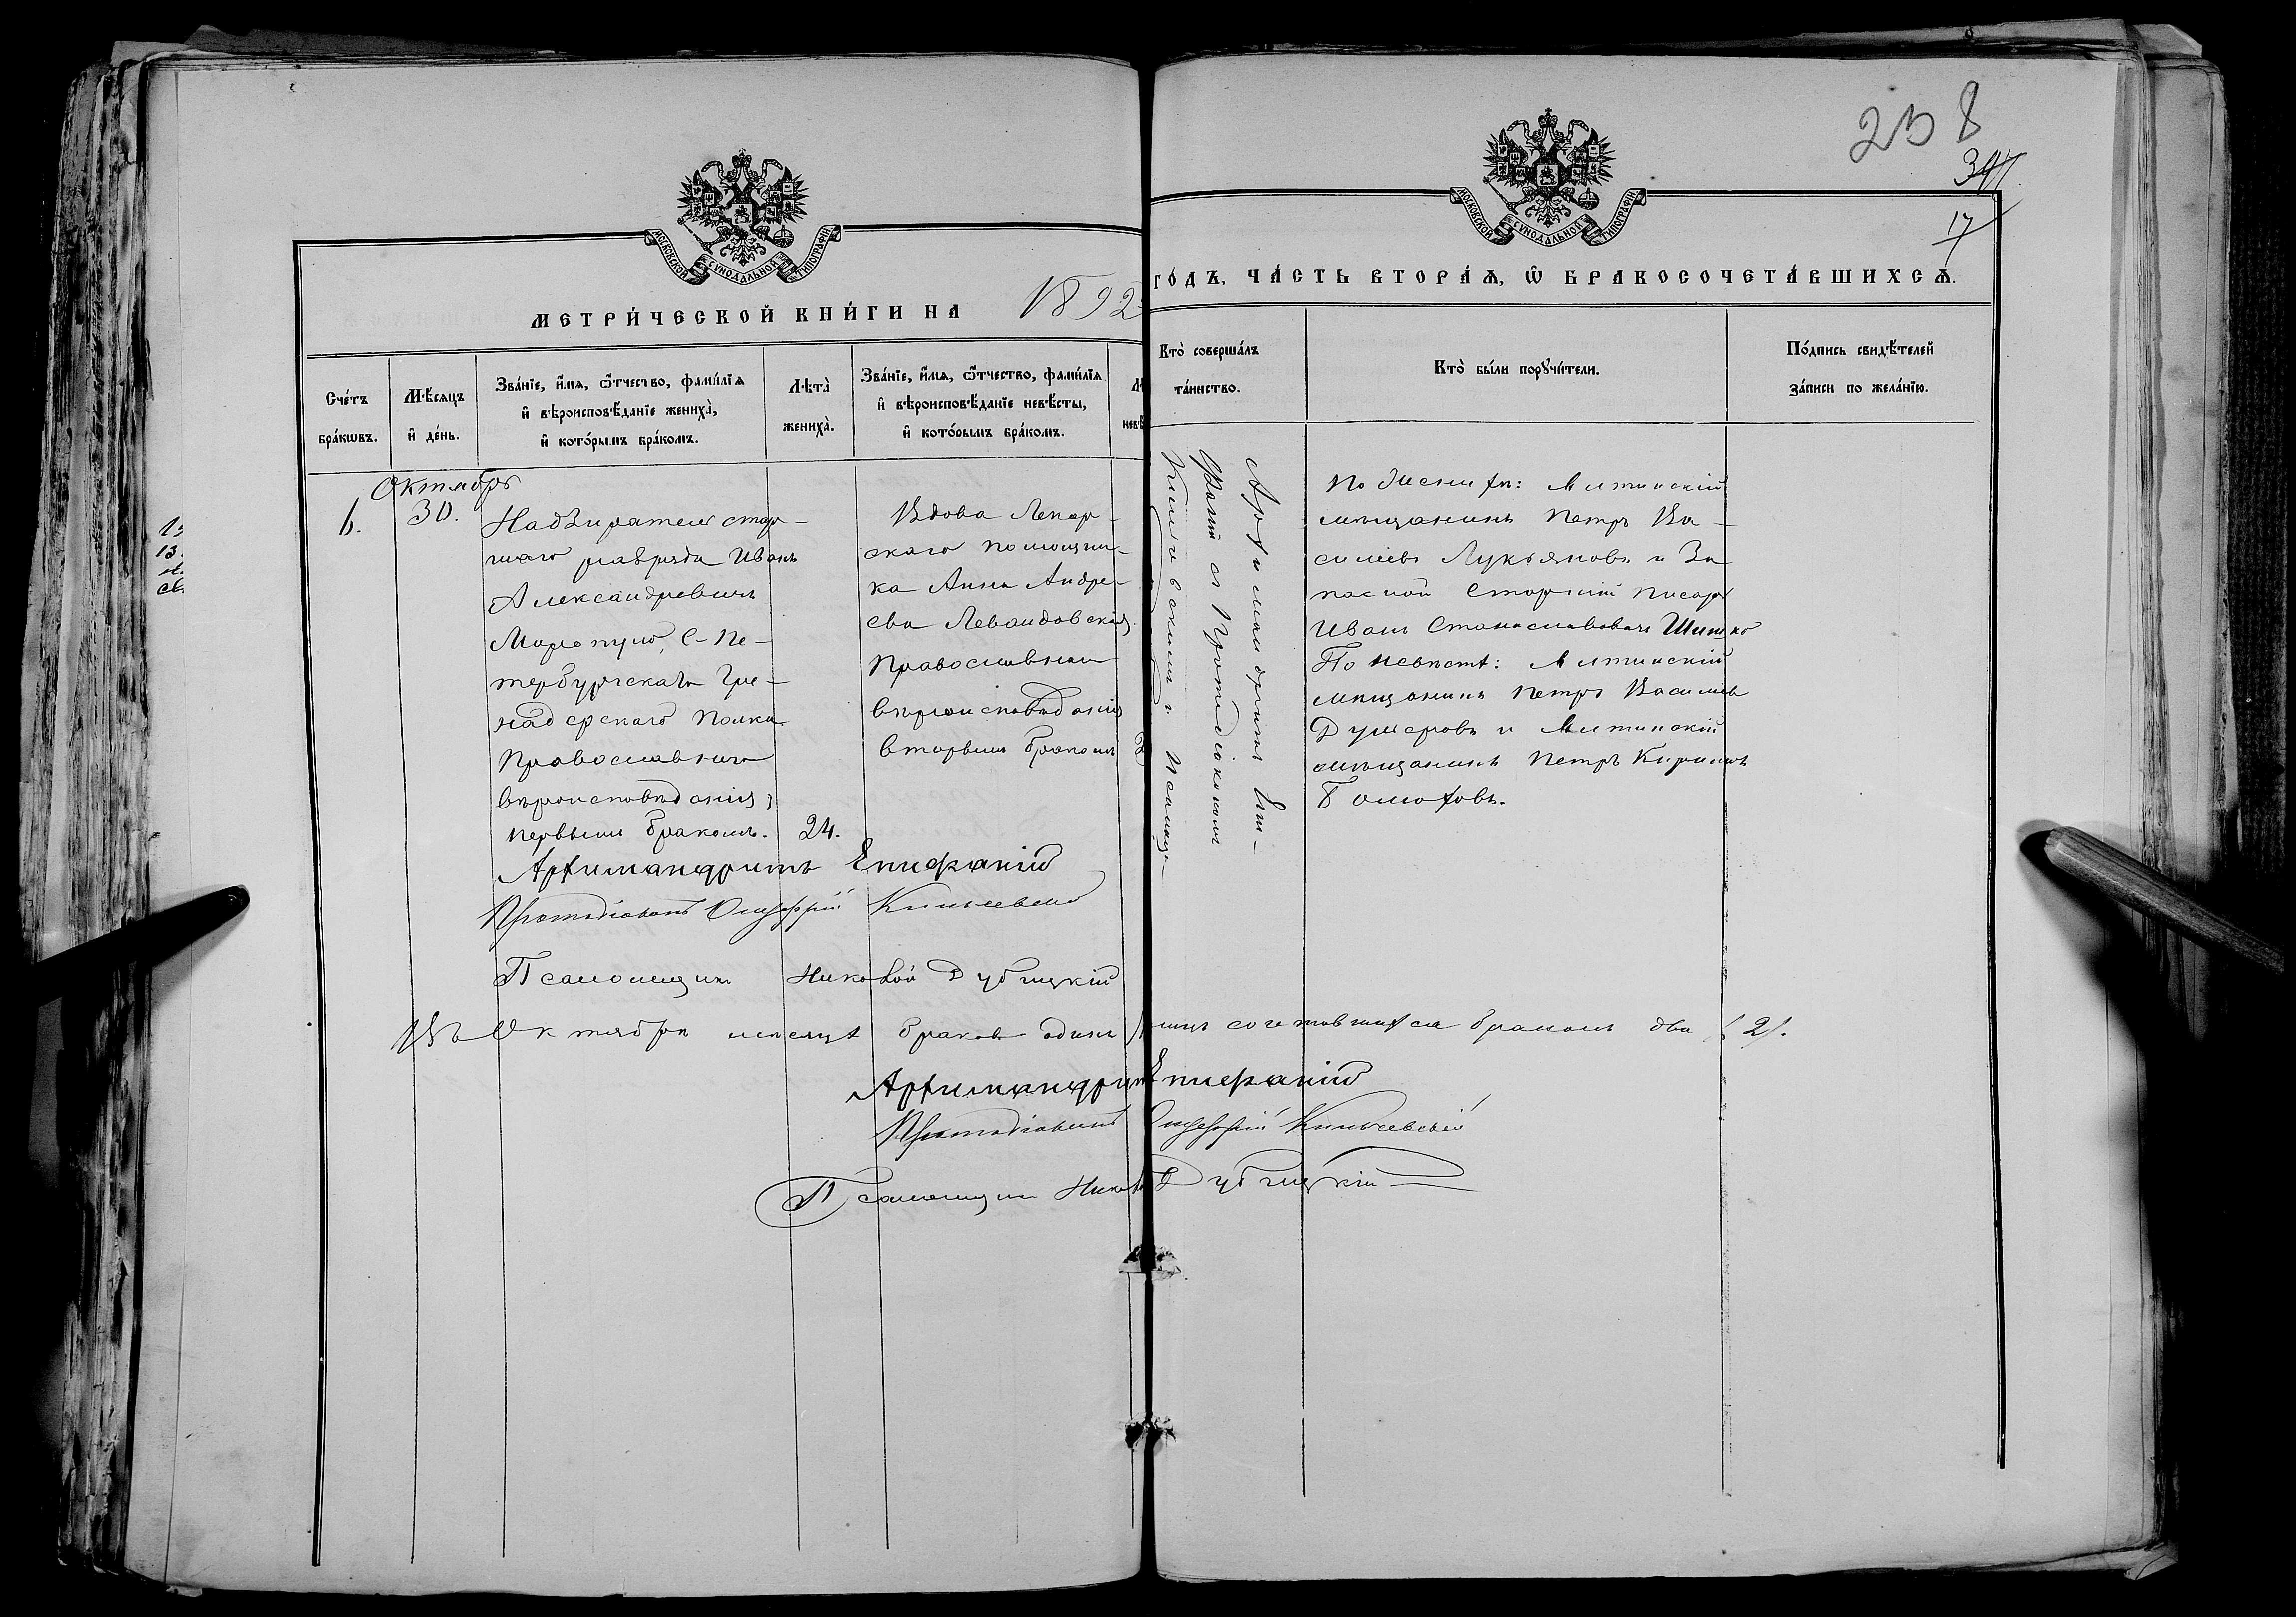 238
347
17
МОСКОВСКОЙ СѴНОДАЛЬНОЙ ТИПОГРАФІИ
МОСКОВСКОЙ СѴНОДАЛЬНОЙ ТИПОГРАФІИ
МЕТРИ́ЧЕСКОЙ КНИ́ГИ НА 1892
ГО́ДЪ, ЧА́СТЬ ВТОРА́Ѧ, Ѡ҆ БРАКОСОЧЕТА́ВШИХСѦ.
Сче́тъ
бра́кѡвъ.
Мѣ́сѧцъ
и҆ де́нь.
Зва́нїе, и҆́мѧ, ѻ҆́тчество, фами́лїѧ
и҆ вѣроисповѣ́данїе жениха̀,
и҆ кото́рымъ бра́комъ.
Лѣта̀
жениха̀.
Зва́нїе, и҆́мѧ, ѻ҆́тчество, фами́лїѧ
и҆ вѣроисповѣ́данїе невѣ́сты,
и҆ кото́рымъ бра́комъ.
Кто̀ соверша́лъ
та́инство.
Кто̀ бы́ли порꙋчи́тели.
По́дпись свидѣ́телей
за́писи по жела́нїю.
Октябрь
6.
30.
Надзиратель стар-
шаго разряда Иванъ
Александровичъ
С-Пе-
тербургскаго Гре-
надерскаго полка
Православнаго
вѣроисповѣданія,
первымъ бракомъ.
24.
Вдова Лекар-
скаго помощни-
ка Анна Андре-
ева Левандовская,
Православнаго
вѣроисповѣданія
вторымъ бракомъ
Архимандритъ Епи-
фаній съ Протодіакономъ
По женихѣ: Мѣщанинъ Петръ Ва-
сильевъ Лукьяновъ и За-
пасной Старшій писарь
Иванъ Станиславовичъ Шишко
По невѣстѣ:
мѣщанинъ Петръ Васильевъ
и
мѣщанинъ Петръ Кириловъ
Болотовъ.
Архимандритъ Епифаній
Протодіаконъ
Псаломщикъ Николай Дубицкій
Въ Октябрѣ мѣсяцѣ браковъ одинъ, лицъ сочетавшихся бракомъ два (2).
Архимандритъ Епифаній
Протодіаконъ
Псаломщикъ Николай Дубицкій